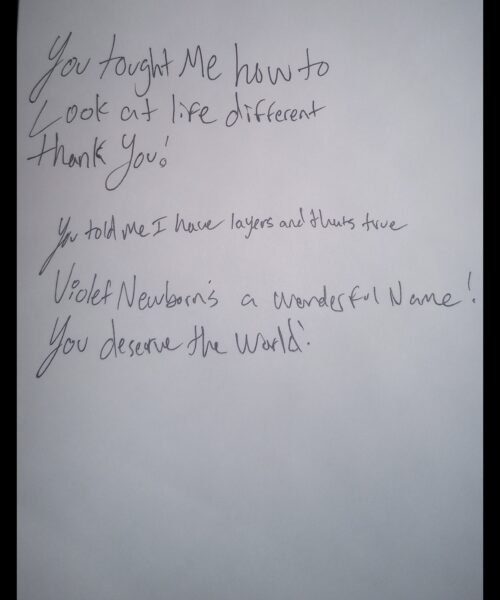 You tought Me how to
Look at life different
thank You!
You told me I have layers and thats true
Violet Newborn's a wonderful Name!
You deserve the World!